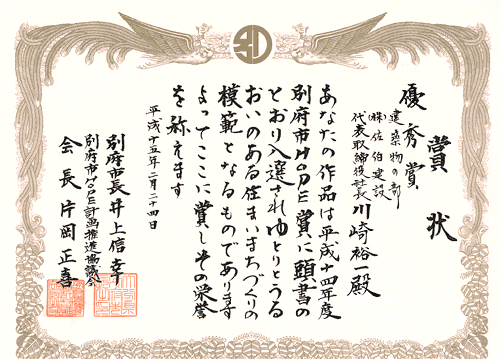 賞状
優秀賞
建築物の部
(株)佐伯建設
代表取締役社長 川崎裕一殿
あなたの作品は平成十四年度
別府市HOPE賞に頭書の
とおり入選されゆとりとうる
おいのある住まいまちづくりの
模範となるものであります
よってここに賞しその栄誉
を称えます
平成十五年二月二十四日
別府市長 井上信幸
別府市HOPE計画推進協議会
会長 片岡正喜